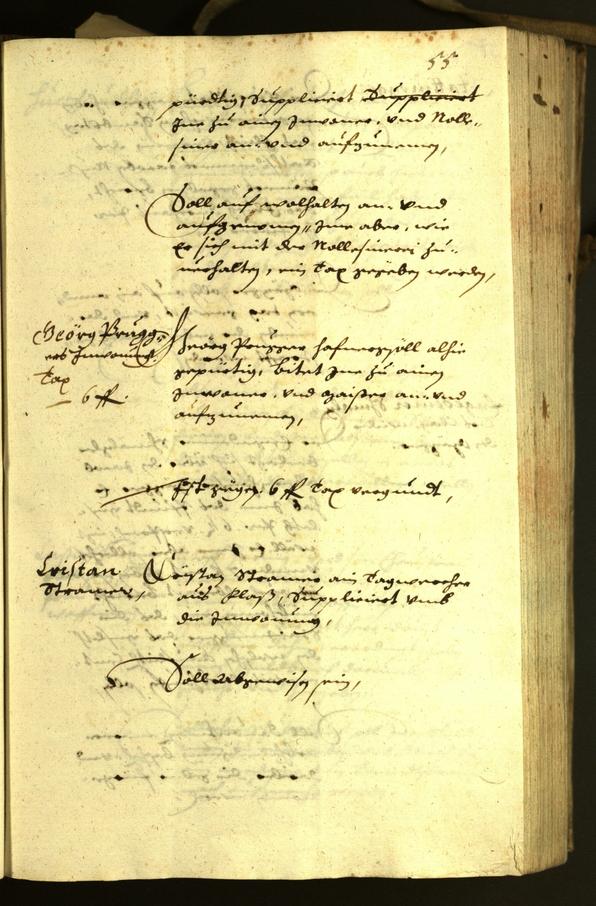 55
pürdtig, Suppliciert Suppliciert
Ine zu ainen Inwoner, vnd Nolle-
siner an- vnd aufzunemen,
Soll auf wolhalten an- vnd
aufgenomen, Ime aber, wie
Er sich mit der Nollesinerei zu-
uerhalten, ein Tax gegeben werden,
Geörg Prugg-
ers Inwonung.
Tax
6 ff.
Georg Prugger hafnergsöll alhie
gepürtig, bitet Ine zu ainen
Inwoner, vnd Maister an- vnd
aufzunemen,
Ist gegen 6 ff Tax vergundt,
Cristan
Stramer,
Cristan Stramer ain Tagwercher
aus Klaß, Suppliciert vmb
die Inwonung,
Soll Abgewisen sein,